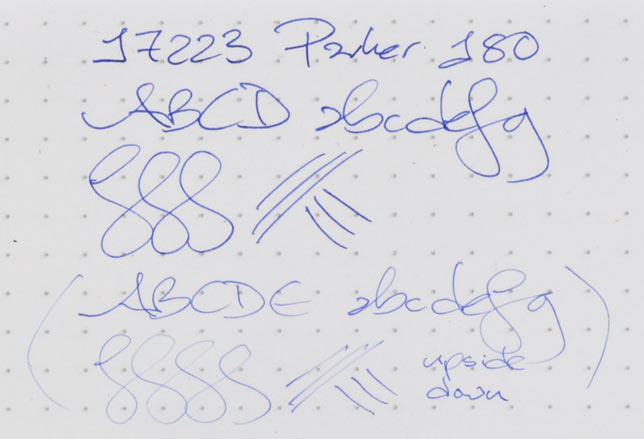 17223 Parker 180
ABCD abcdefg
(ABCDE abcdefg)
upside
down